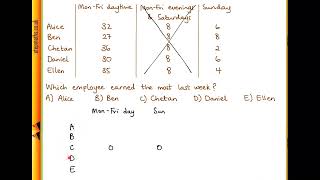 Mon-Fri daytime Mon-Fri evenings & Saturdays Sunday
Alice 32 8 6
Ben 27 8 8
Chetan 36 8 2
Daniel 30 8 6
Ellen 35 8 4
Which employee earned the most last week?
A) Alice B) Ben C) Chetan D) Daniel E) Ellen
Mon-Fri day Sun
A
B
C 0 0
D
E